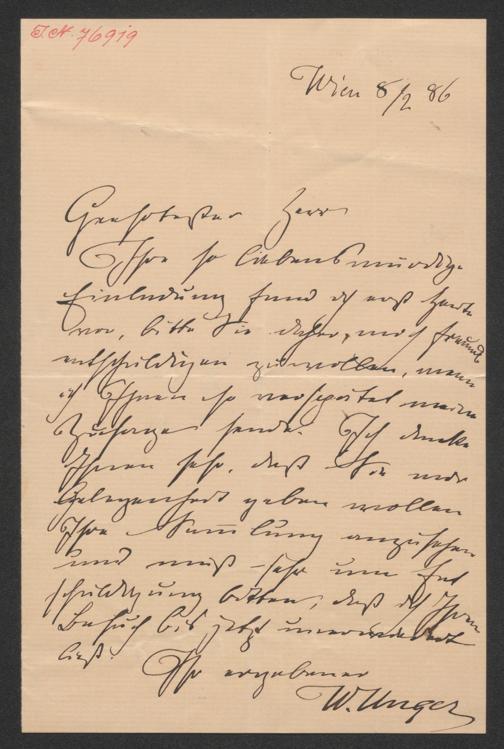 I.N. 76919
Wien 8/2 86
Geehrtester Herr
Ihre so liebenswürdige
Einladung fand ich erst heute
vor, bitte Sie daher, mich freundl
entschuldigen zu wollen, wenn
ich Ihnen so verspätet meine
Zusage sende. Ich danke
Ihnen sehr, daß Sie mir
Gelegenheit geben wollen
Ihre Sammlung anzusehen
und muß sehr um Ent
schuldigung bitten, daß ich Ihren
Besuch bis jetzt unerwidert
ließ.
Ihr ergebener
W. Unger